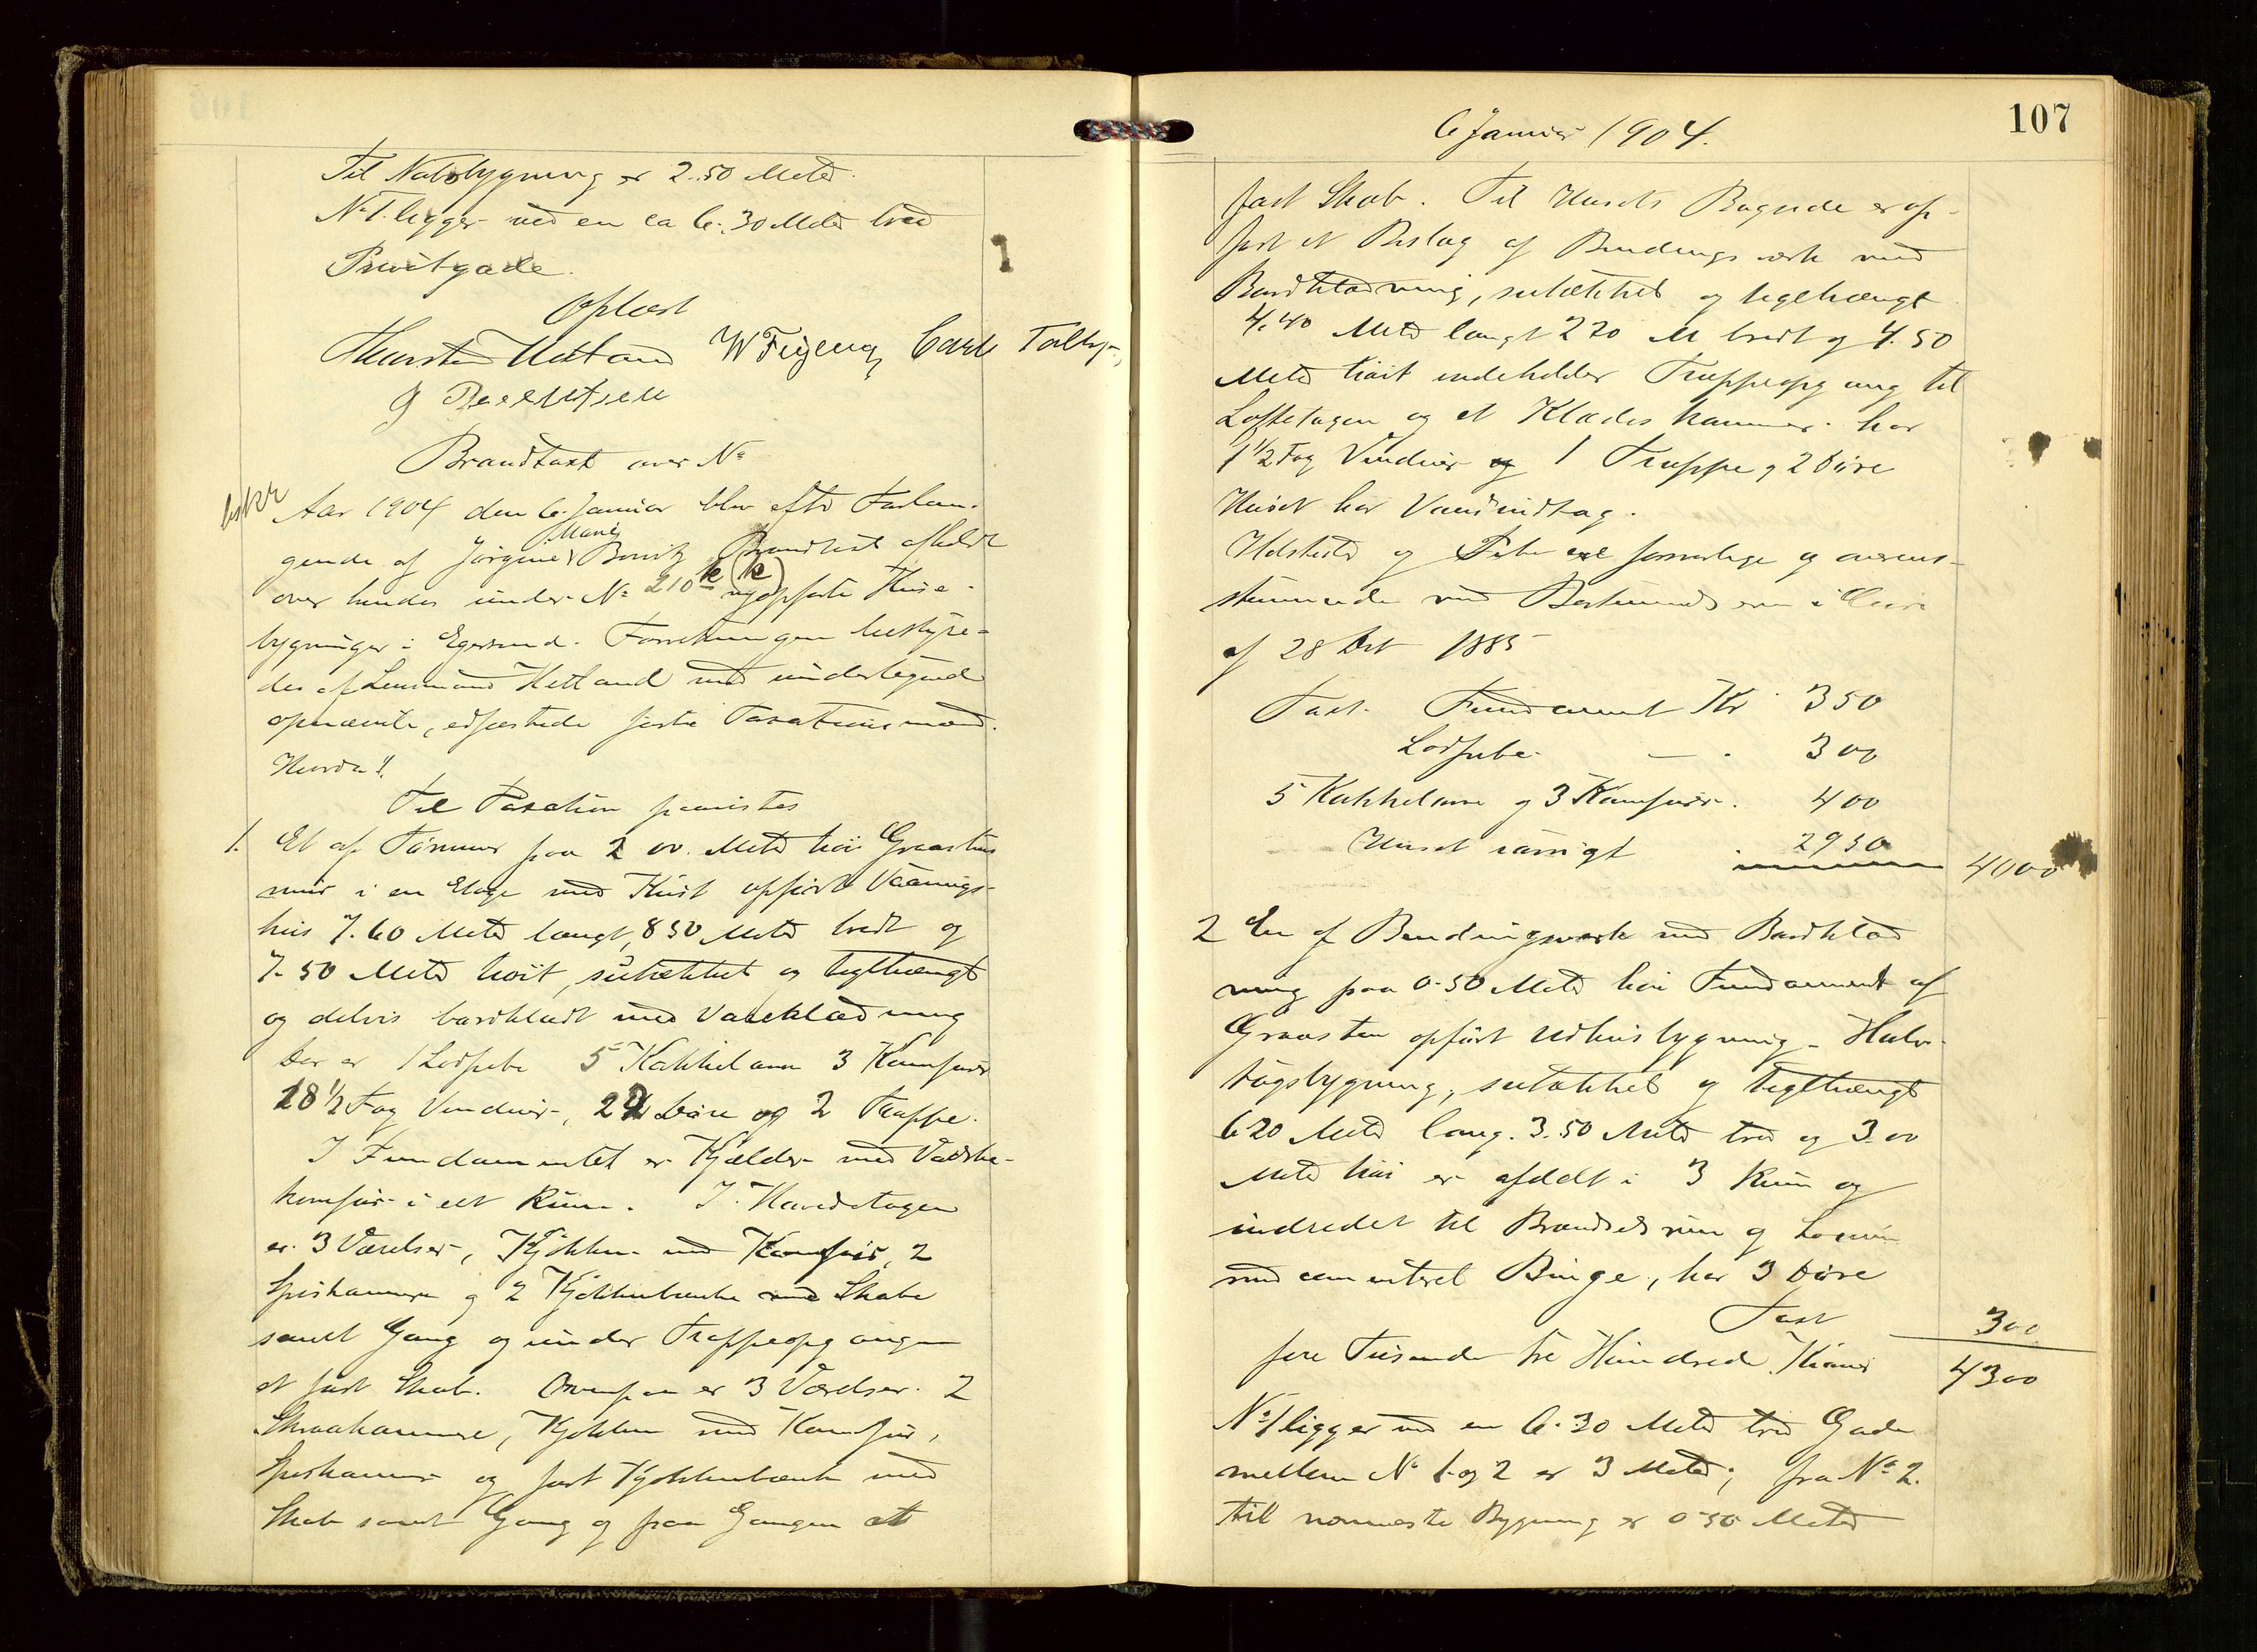 Til Nabobygning er 2.50 Meter.
No 1. ligger ved en ca 6.30 Meter bred
Privitgade.
Oplæst
Hetland W Feyling, Carl
Brandtaxt over No
Aar 1904 den 6. Januar blev efter Forlan-
gende af Jørgine Marie Brandtaxt afholdt
over hendes under No 210 k (k) nyopførte Huse-
bygninger i Egersund. Forretningen bestyre-
des af Lensmand Hetland med undertegnede
opnævnte, edfæstede faste Taxationsmænd.
Hvorda!!
Til Taxation fremvistes
1. Et af Tømmer paa 2 00 Meter høi Graastens
mur i en Etage med Kvist opført Vaanings-
hus 7.60 Meter langt, 8 50 Meter bredt og
7.50 Meter høit, sutækket og teglhængt
og delvis bordklædt med Vareklædning
Der er 1 Lodpibe 5 Kakkelovne 3 Komfurer
18 1/2 Fag Vinduer, 22 Døre og 2 Trappe.
I Fundamentet er Kjelder med Vadske-
komfur i et Rum. I Hovedetagen
er 3 Værelser, Kjøkken med Komfur, 2
Spiskammere og 2 Kjøkkenbænke med Skabe
samt Gang og under Trappeopgangen
et fast Skab. Ovenpaa er 3 Værelser. 2
Skraakammere, Kjøkken med Komfur,
Spiskammer og fast Kjøkkenbænk med
Skab samt Gang og paa Gangen et
107
6 Januar 1904.
fast Skab. Til Husets Bagside er op-
ført et Bislag af Bindingsverk med
Bordklædning, sutækket og teglhængt
4.40 Meter langt 2 20 M bredt og 4.50
Meter høit indeholder Trappeopgang til
Loftetagen og et Klædeskammer. har
1 1/2 Fag Vinduer og 1 Trappe, 2 Døre
Huset har Vandindtag.
Ildsteder og Piber ere forsvarlige og overens-
stemmende med Bestemmelserne i
af 28 1885
Taxt. Fundament Kr 350
Lodpibe — . 300
5 Kakkelovne og 3 Komfurer. 400
Huset iøvrigt . 2950 4000
2 En af Bindingsværk med Bordklæd
ning paa 0.50 Meter høi Fundament af
Graasten opført Udhusbygning. Halv-
tagsbygning, sutækket og teglhængt
6 20 Meter lang. 3.50 Meter bred og 3.00
Meter høi er afdelt i 3 Rum og
indredet til Brændselsrum og
med cementeret Binge, har 3 Døre
Taxt 300
fire Tusinde tre Hundrede Kroner 4300
No 1 ligger ved en 6.30 Meter bred Gade
mellem No 1 og 2 er 3 Meter; fra No 2.
til nærmeste Bygning er 0 50 Meter